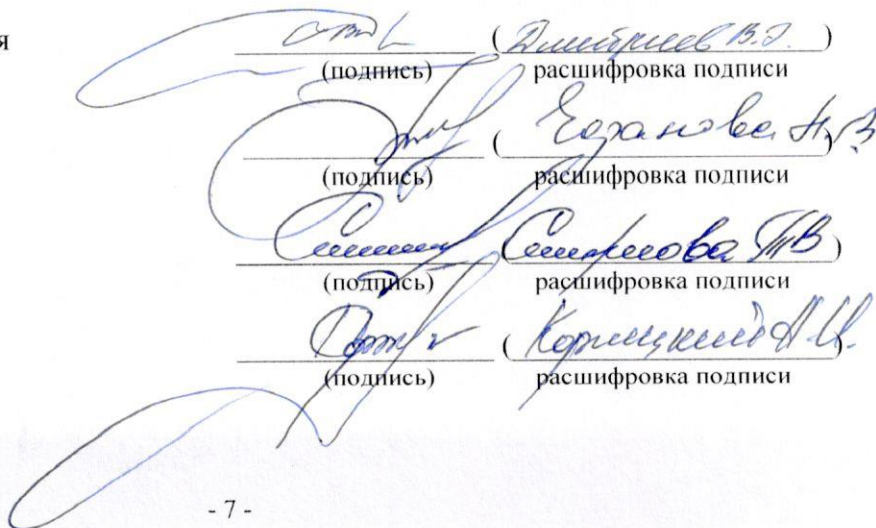 я ( Дмитриев В.Э. )
(подпись) расшифровка подписи
( Н.В. )
(подпись) расшифровка подписи
Смирнова ТВ )
(подпись) расшифровка подписи
( Корицкий А.И. )
(подпись) расшифровка подписи
- 7 -